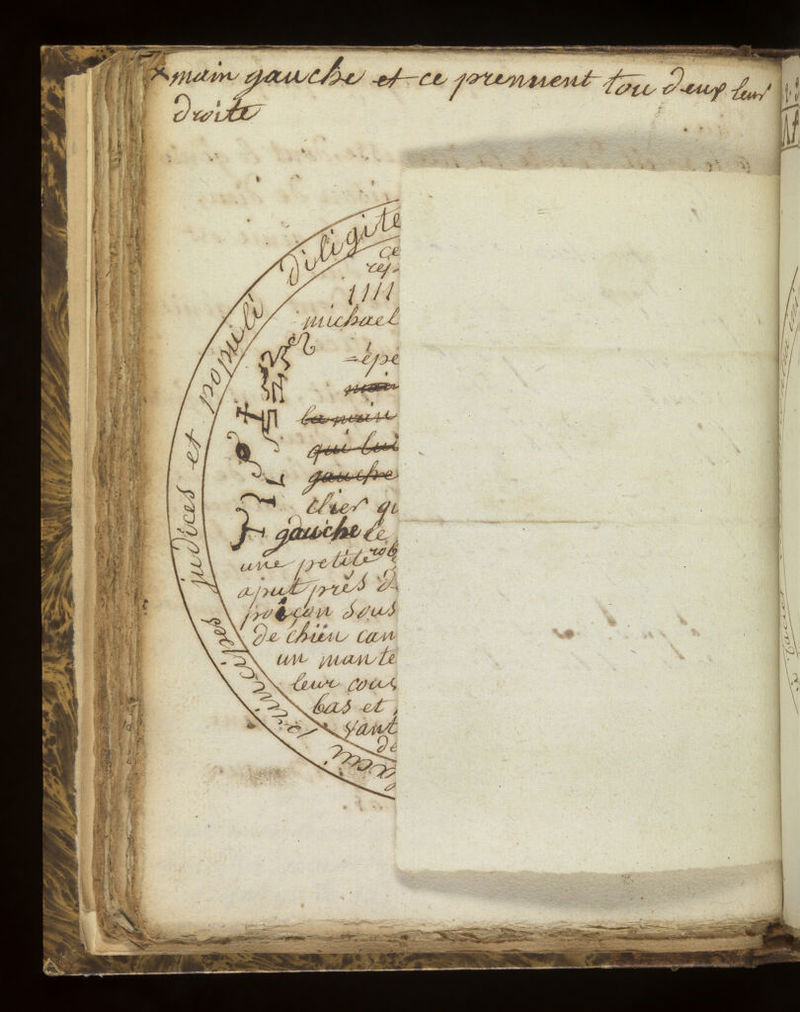 x main gauche et ce prennent tou deux leur
droite
principes judices et populi diligite
ce
rep
1111
michael
=epe
main
la main
qui lui
gauche
clier qu
gauche le
une petite rob
aput près d
poiçon sous
de chien can
un mante
leur cous
bas et
vant
de